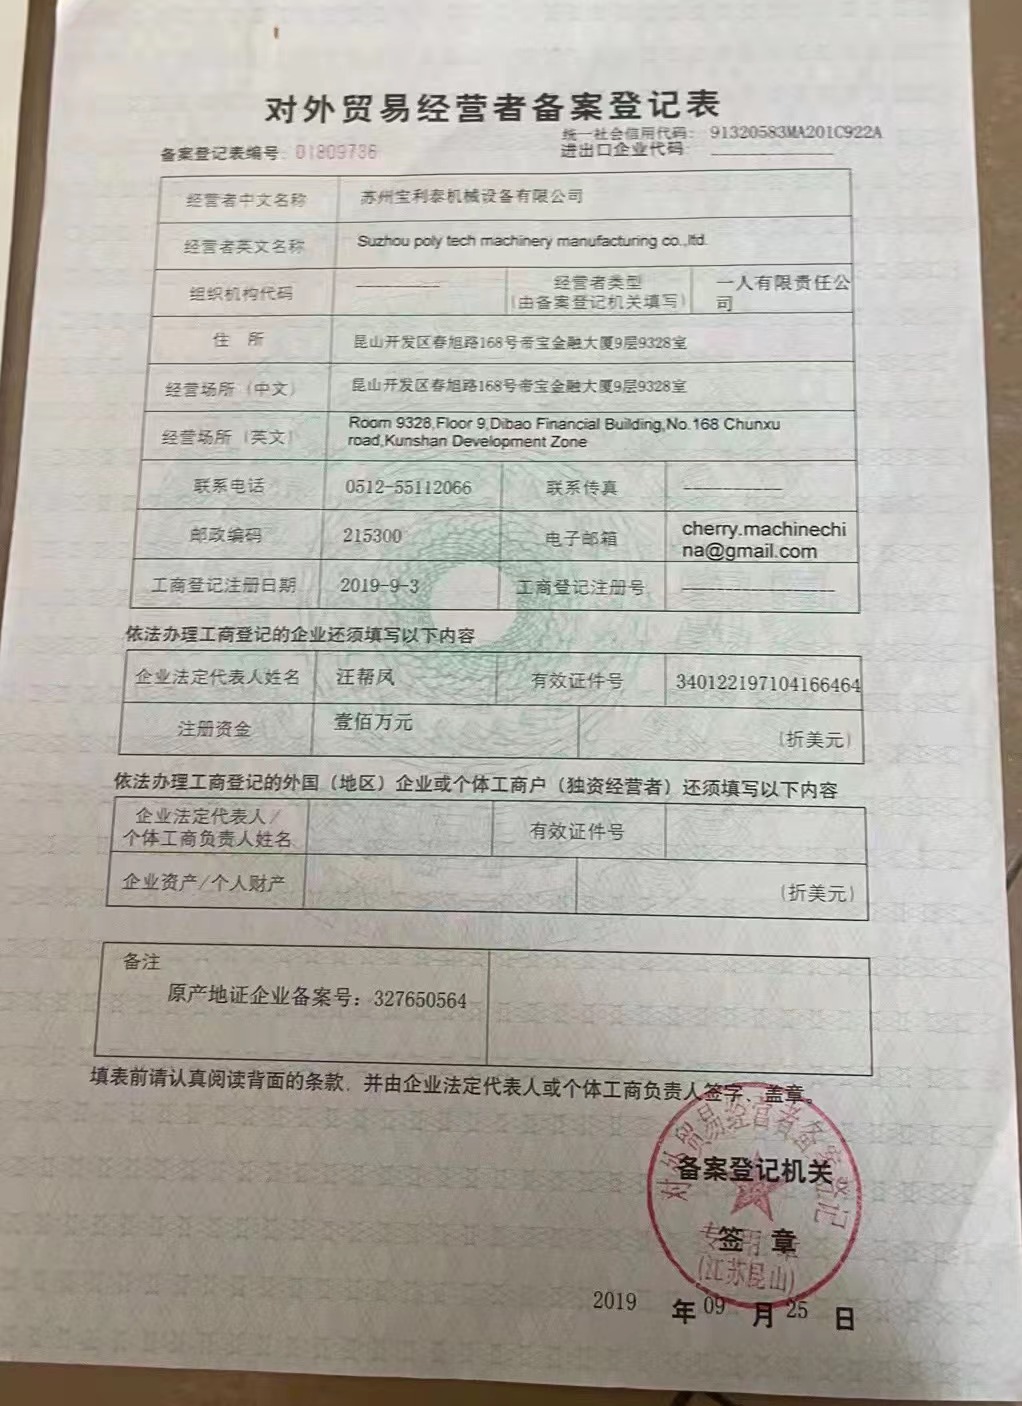 对外贸易经营者备案登记表
统一社会信用代码： 91320583MA201C922A
备案登记表编号：01809736
进出口企业代码
经营者中文名称 苏州宝利泰机械设备有限公司
经营者英文名称 Suzhou poly tech machinery manufacturing co.,ltd.
组织机构代码 ———— 经营者类型 一人有限责任公
(由备案登记机关填写) 司
住 所 昆山开发区春旭路168号帝宝金融大厦9层9328室
经营场所（中文） 昆山开发区春旭路168号帝宝金融大厦9层9328室
经营场所（英文） Room 9328,Floor 9,Dibao Financial Building,No.168 Chunxu
road,Kunshan Development Zone
联系电话 0512-55112066 联系传真 ————
邮政编码 215300 电子邮箱 cherry.machinechi
na@gmail.com
工商登记注册日期 2019-9-3 工商登记注册号 ————
依法办理工商登记的企业还须填写以下内容
企业法定代表人姓名 汪帮凤 有效证件号 340122197104166464
注册资金 壹佰万元 (折美元)
依法办理工商登记的外国（地区）企业或个体工商户（独资经营者）还须填写以下内容
企业法定代表人/
个体工商负责人姓名 有效证件号
企业资产/个人财产 (折美元)
备注
原产地证企业备案号：327650564
填表前请认真阅读背面的条款，并由企业法定代表人或个体工商负责人签字、盖章。
对外贸易经营者备案登记
备案登记机关
专用章
签 章
(江苏昆山)
2019 年 09 月 25 日